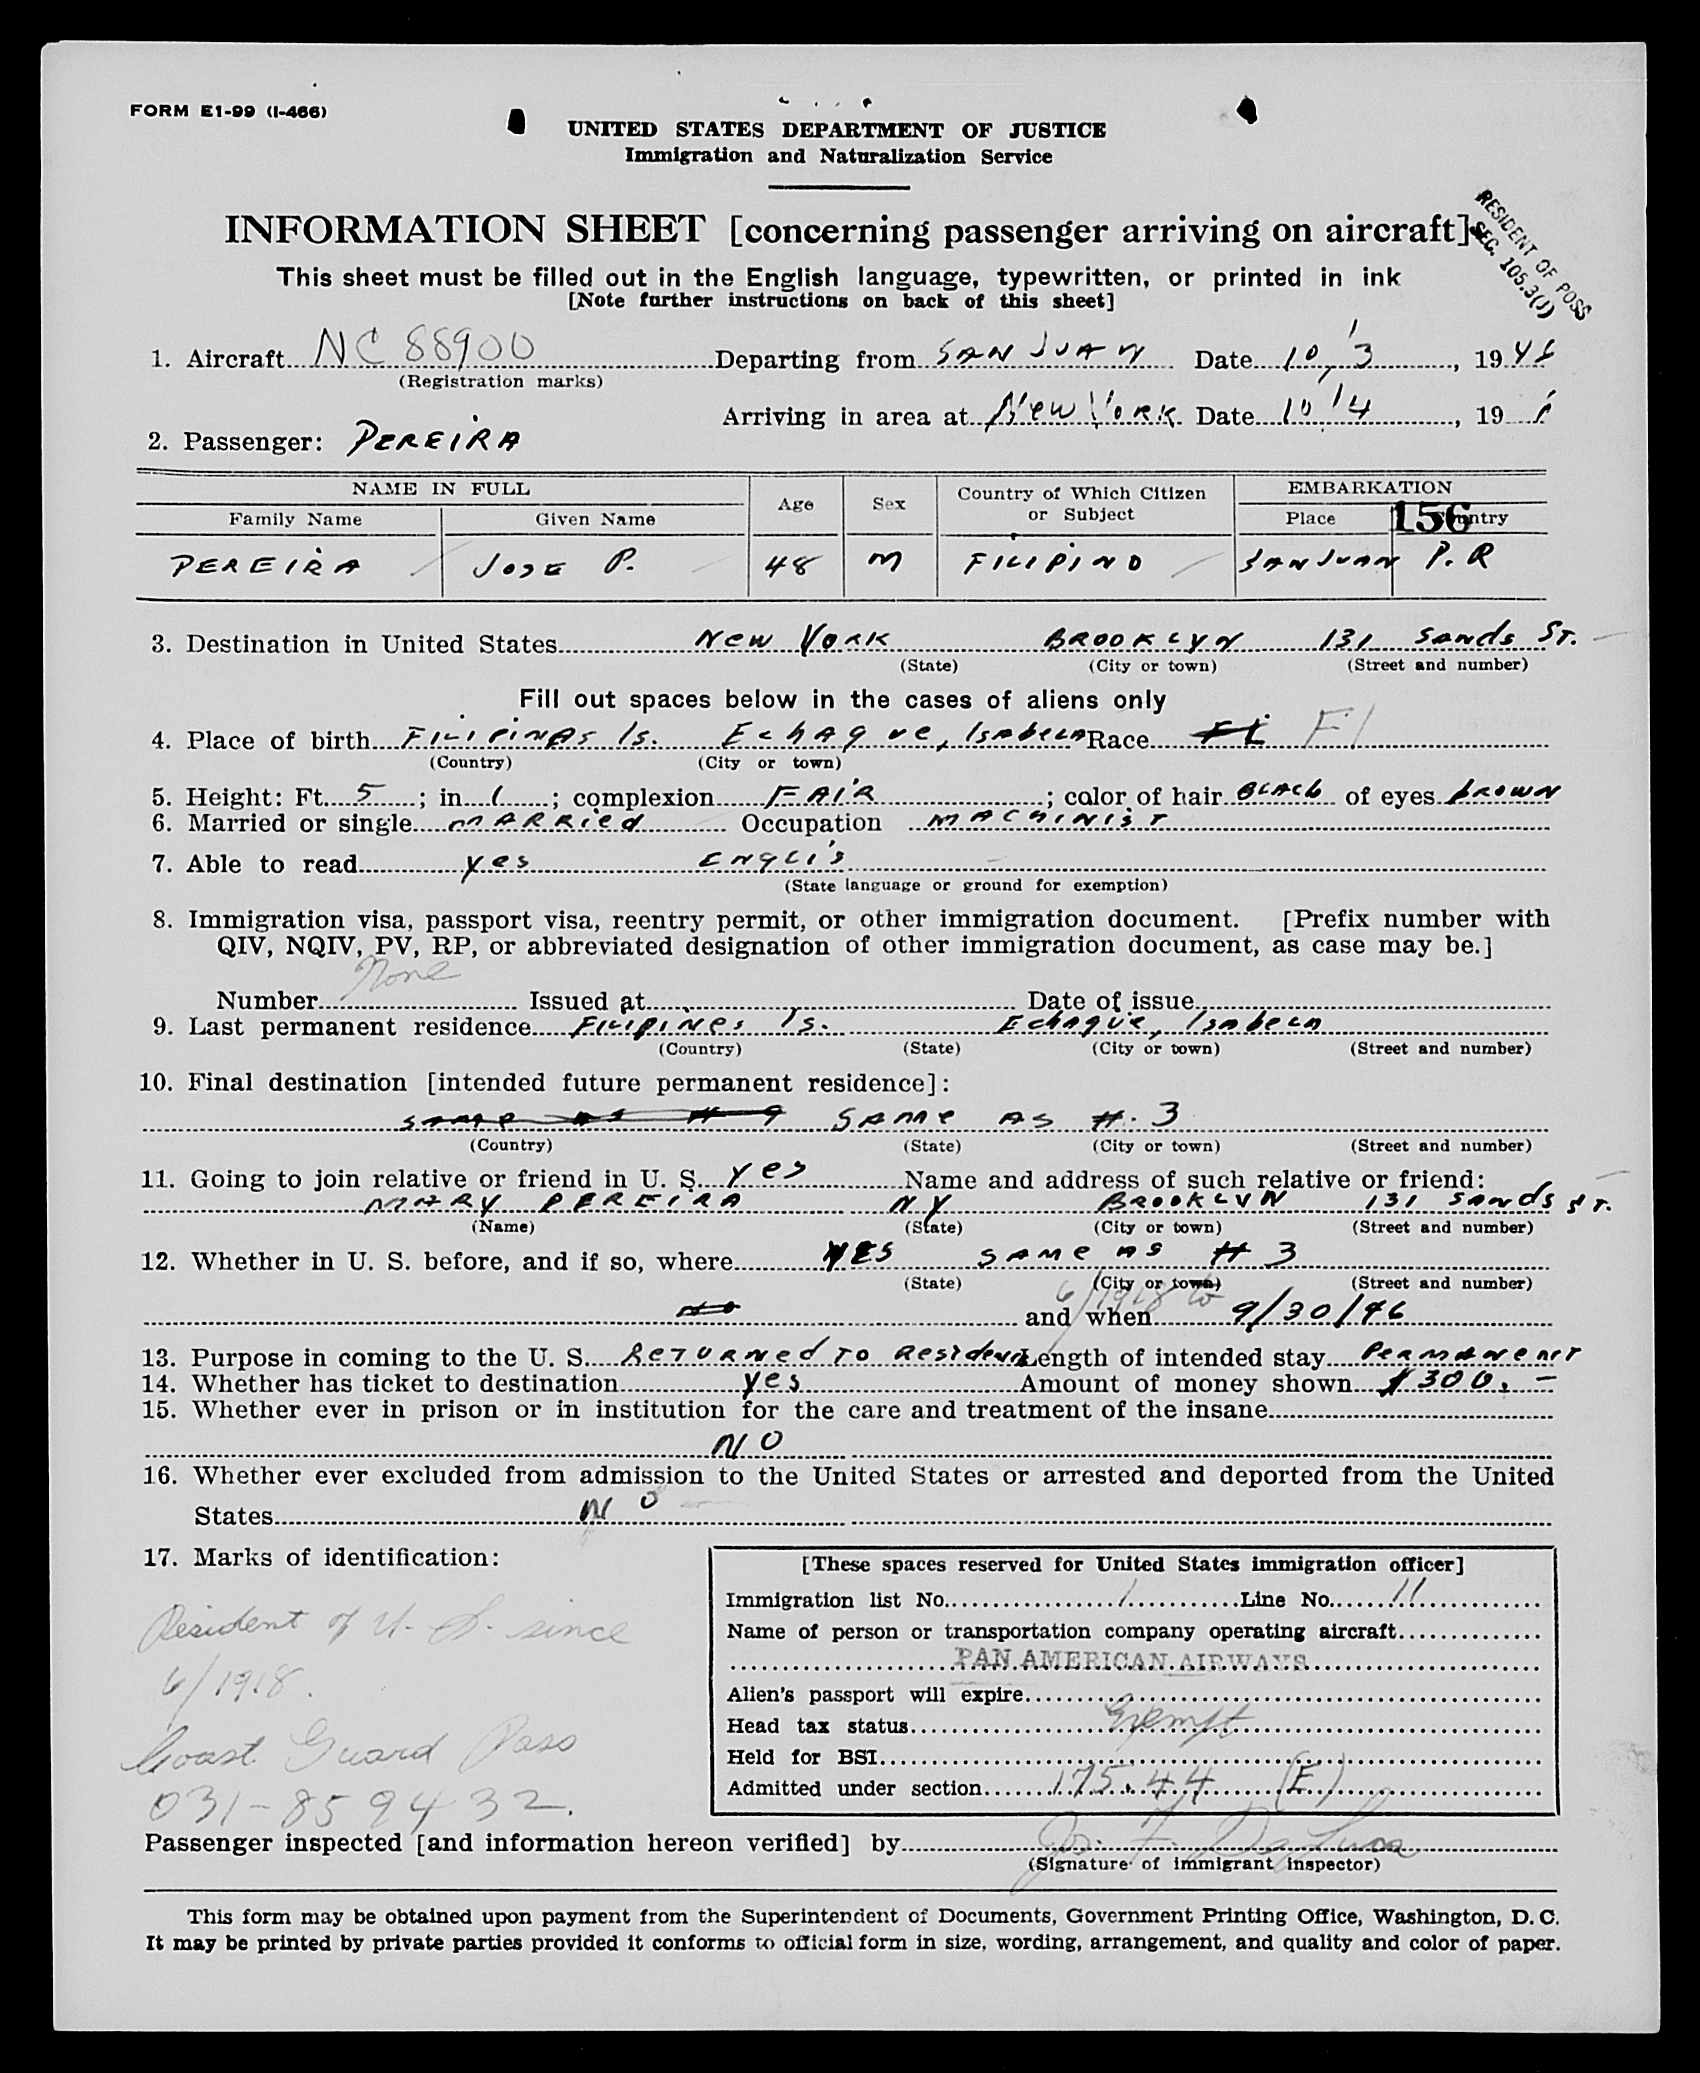 FORM E1-99 (I-466)
UNITED STATES DEPARTMENT OF JUSTICE
Immigration and Naturalization Service
INFORMATION SHEET [concerning passenger arriving on aircraft]
RESIDENT OF POSS
SEC. 105.3(J)
This sheet must be filled out in the English language, typewritten, or printed in ink
[Note further instructions on back of this sheet]
1. Aircraft NC 88900 Departing from SAN JUAN Date 10/3, 1946
(Registration marks)
Arriving in area at New York Date 10/4, 19
2. Passenger: PEREIRA
NAME IN FULL Age Sex Country of Which Citizen or Subject EMBARKATION
Family Name Given Name Place Country 156
PEREIRA JOSE P. 48 M FILIPINO SAN JUAN P.R
3. Destination in United States New York BROOKLYN 131 Sands ST.
(State) (City or town) (Street and number)
Fill out spaces below in the cases of aliens only
4. Place of birth FILIPINAS Is. Echague, Isabela Race FI FI
(Country) (City or town)
5. Height: Ft. 5; in. 1; complexion FAIR; color of hair BLACK of eyes brown
6. Married or single MARRied Occupation MACHINIST
7. Able to read yes ENGLIS
(State language or ground for exemption)
8. Immigration visa, passport visa, reentry permit, or other immigration document. [Prefix number with
QIV, NQIV, PV, RP, or abbreviated designation of other immigration document, as case may be.]
Number None Issued at Date of issue
9. Last permanent residence FILIPINES Is. Echague, Isabela
(Country) (State) (City or town) (Street and number)
10. Final destination [intended future permanent residence]:
same as # 9 SAME AS #. 3
(Country) (State) (City or town) (Street and number)
11. Going to join relative or friend in U. S. yes Name and address of such relative or friend:
MARY PEREIRA NY BROOKLYN 131 Sands ST.
(Name) (State) (City or town) (Street and number)
12. Whether in U. S. before, and if so, where YES SAME AS # 3
(State) (City or town) (Street and number)
no and when 6/1918 to 9/30/46
13. Purpose in coming to the U. S. Returned to Residence Length of intended stay Permanent
14. Whether has ticket to destination yes Amount of money shown $300.-
15. Whether ever in prison or in institution for the care and treatment of the insane
NO
16. Whether ever excluded from admission to the United States or arrested and deported from the United
States NO
17. Marks of identification:
Resident of U. S. since
6/1918.
Coast Guard Pass
031-859432.
[These spaces reserved for United States immigration officer]
Immigration list No. 1 Line No. 11
Name of person or transportation company operating aircraft
PAN AMERICAN AIRWAYS
Alien's passport will expire
Head tax status Exempt
Held for BSI
Admitted under section 175.44 (E)
Passenger inspected [and information hereon verified] by Jos. F. DeLuca
(Signature of immigrant inspector)
This form may be obtained upon payment from the Superintendent of Documents, Government Printing Office, Washington, D. C.
It may be printed by private parties provided it conforms to official form in size, wording, arrangement, and quality and color of paper.